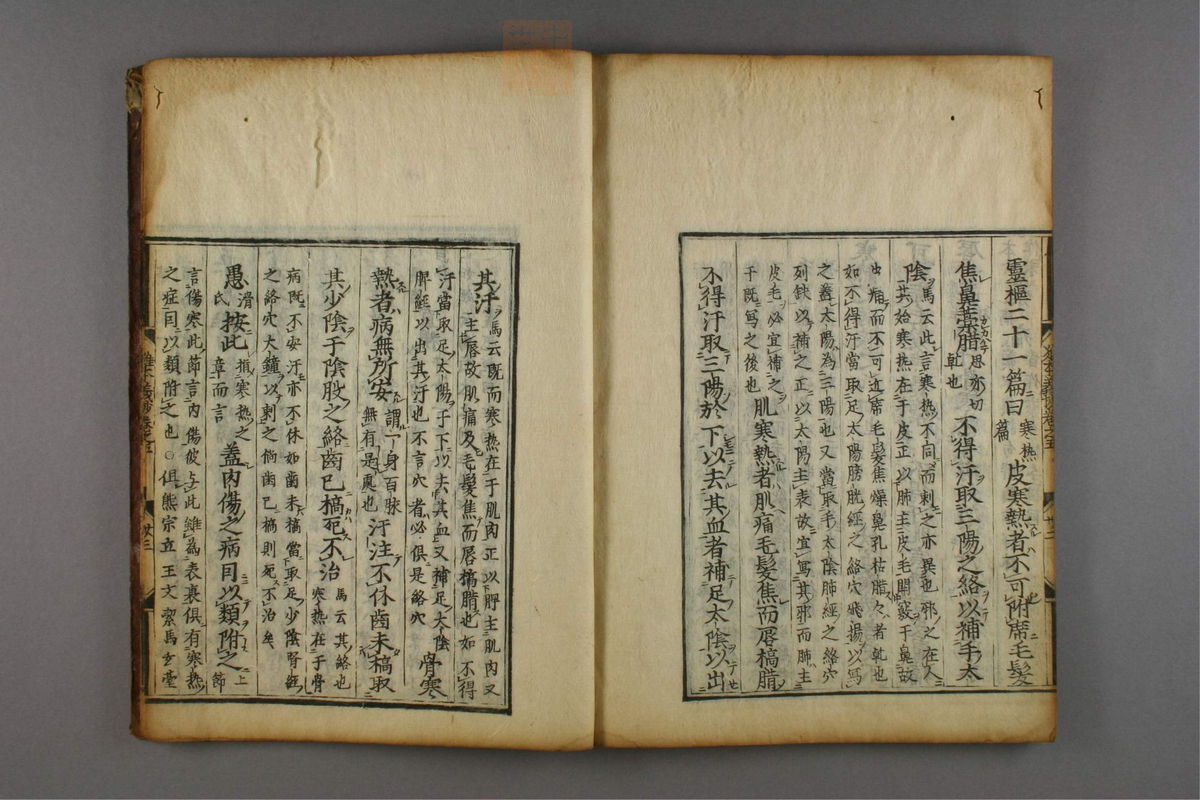 靈樞二十一篇曰寒熱篇皮寒熱者不可附席毛髮
焦鼻藁腊思亦切乾也不得汗取三陽之絡以補手太
陰馬云此言寒熱不同而刺之亦異也邪之在人
其始寒熱在于皮正以肺主皮毛開竅于鼻故
虫痛而不可近席毛髮焦燥鼻孔枯腊々者乾也
如不得汗當取足太陽膀胱經之絡穴飛揚以寫
之蓋太陽為三陽也又當取手太陰肺經之絡穴
列缺以補之正以太陽主表故宜寫其邪而肺主
皮毛必宜補之
于既寫之後也肌寒熱者肌痛毛髮焦而唇槁腊
不得汗取三陽於下以去其血者補足太陰以出
其汗馬云既而寒熱在于肌肉正以脾主肌肉又
主唇故肌痛及毛髮焦而唇槁腊也如不得
汗當取足太陽于下以去其血又補足大陰
脾經以出其汗也不言穴者必俱是絡穴骨寒
熱者病無所安謂一身百脉無有是處也汗注不休齒未槁取
其少陰于陰股之絡齒已槁死不治馬云其絡也寒熱在于骨
病既不安汗亦不休如齒未槁當取足少陰腎經
之絡穴大鐘以刺之倘齒已槁則死不治矣
愚滑氏按此指寒熱之章而言蓋內傷之病目以類附之上節
言傷寒此節言內傷彼与此雖為表裏俱有寒熱
之症目以類附之也○俱熊宗立王文潔馬玄臺